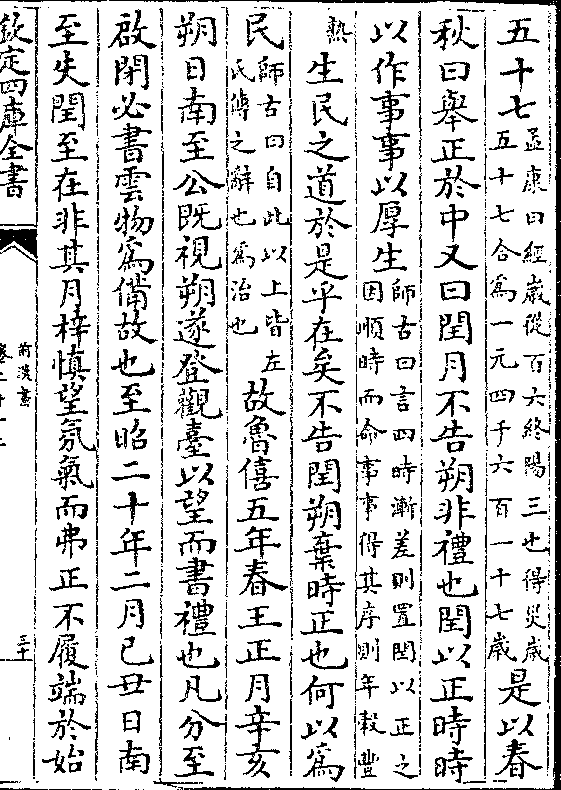 五十七孟康曰經歲從百六終陽三也得災歲五十七合爲一元四千六百一十七歲是以春
秋曰舉正於中又曰閏月不告朔非禮也閏以正時時
以作事事以厚生師古曰言四時漸差則置閏以正之因順時而命事事得其序則年穀豐
熟生民之道於是乎在矣不告閏朔棄時正也何以爲
民師古曰自此以上皆左氏傳之辭也爲治也故魯僖五年春王正月辛亥
朔日南至公既視朔遂登觀臺以望而書禮也凡分至
啟閉必書雲物爲備故也至昭二十年二月已丑日南
至失閏至在非其月梓慎望氛氣而弗正不履端於始
欽定四庫全書
前漢書
三十